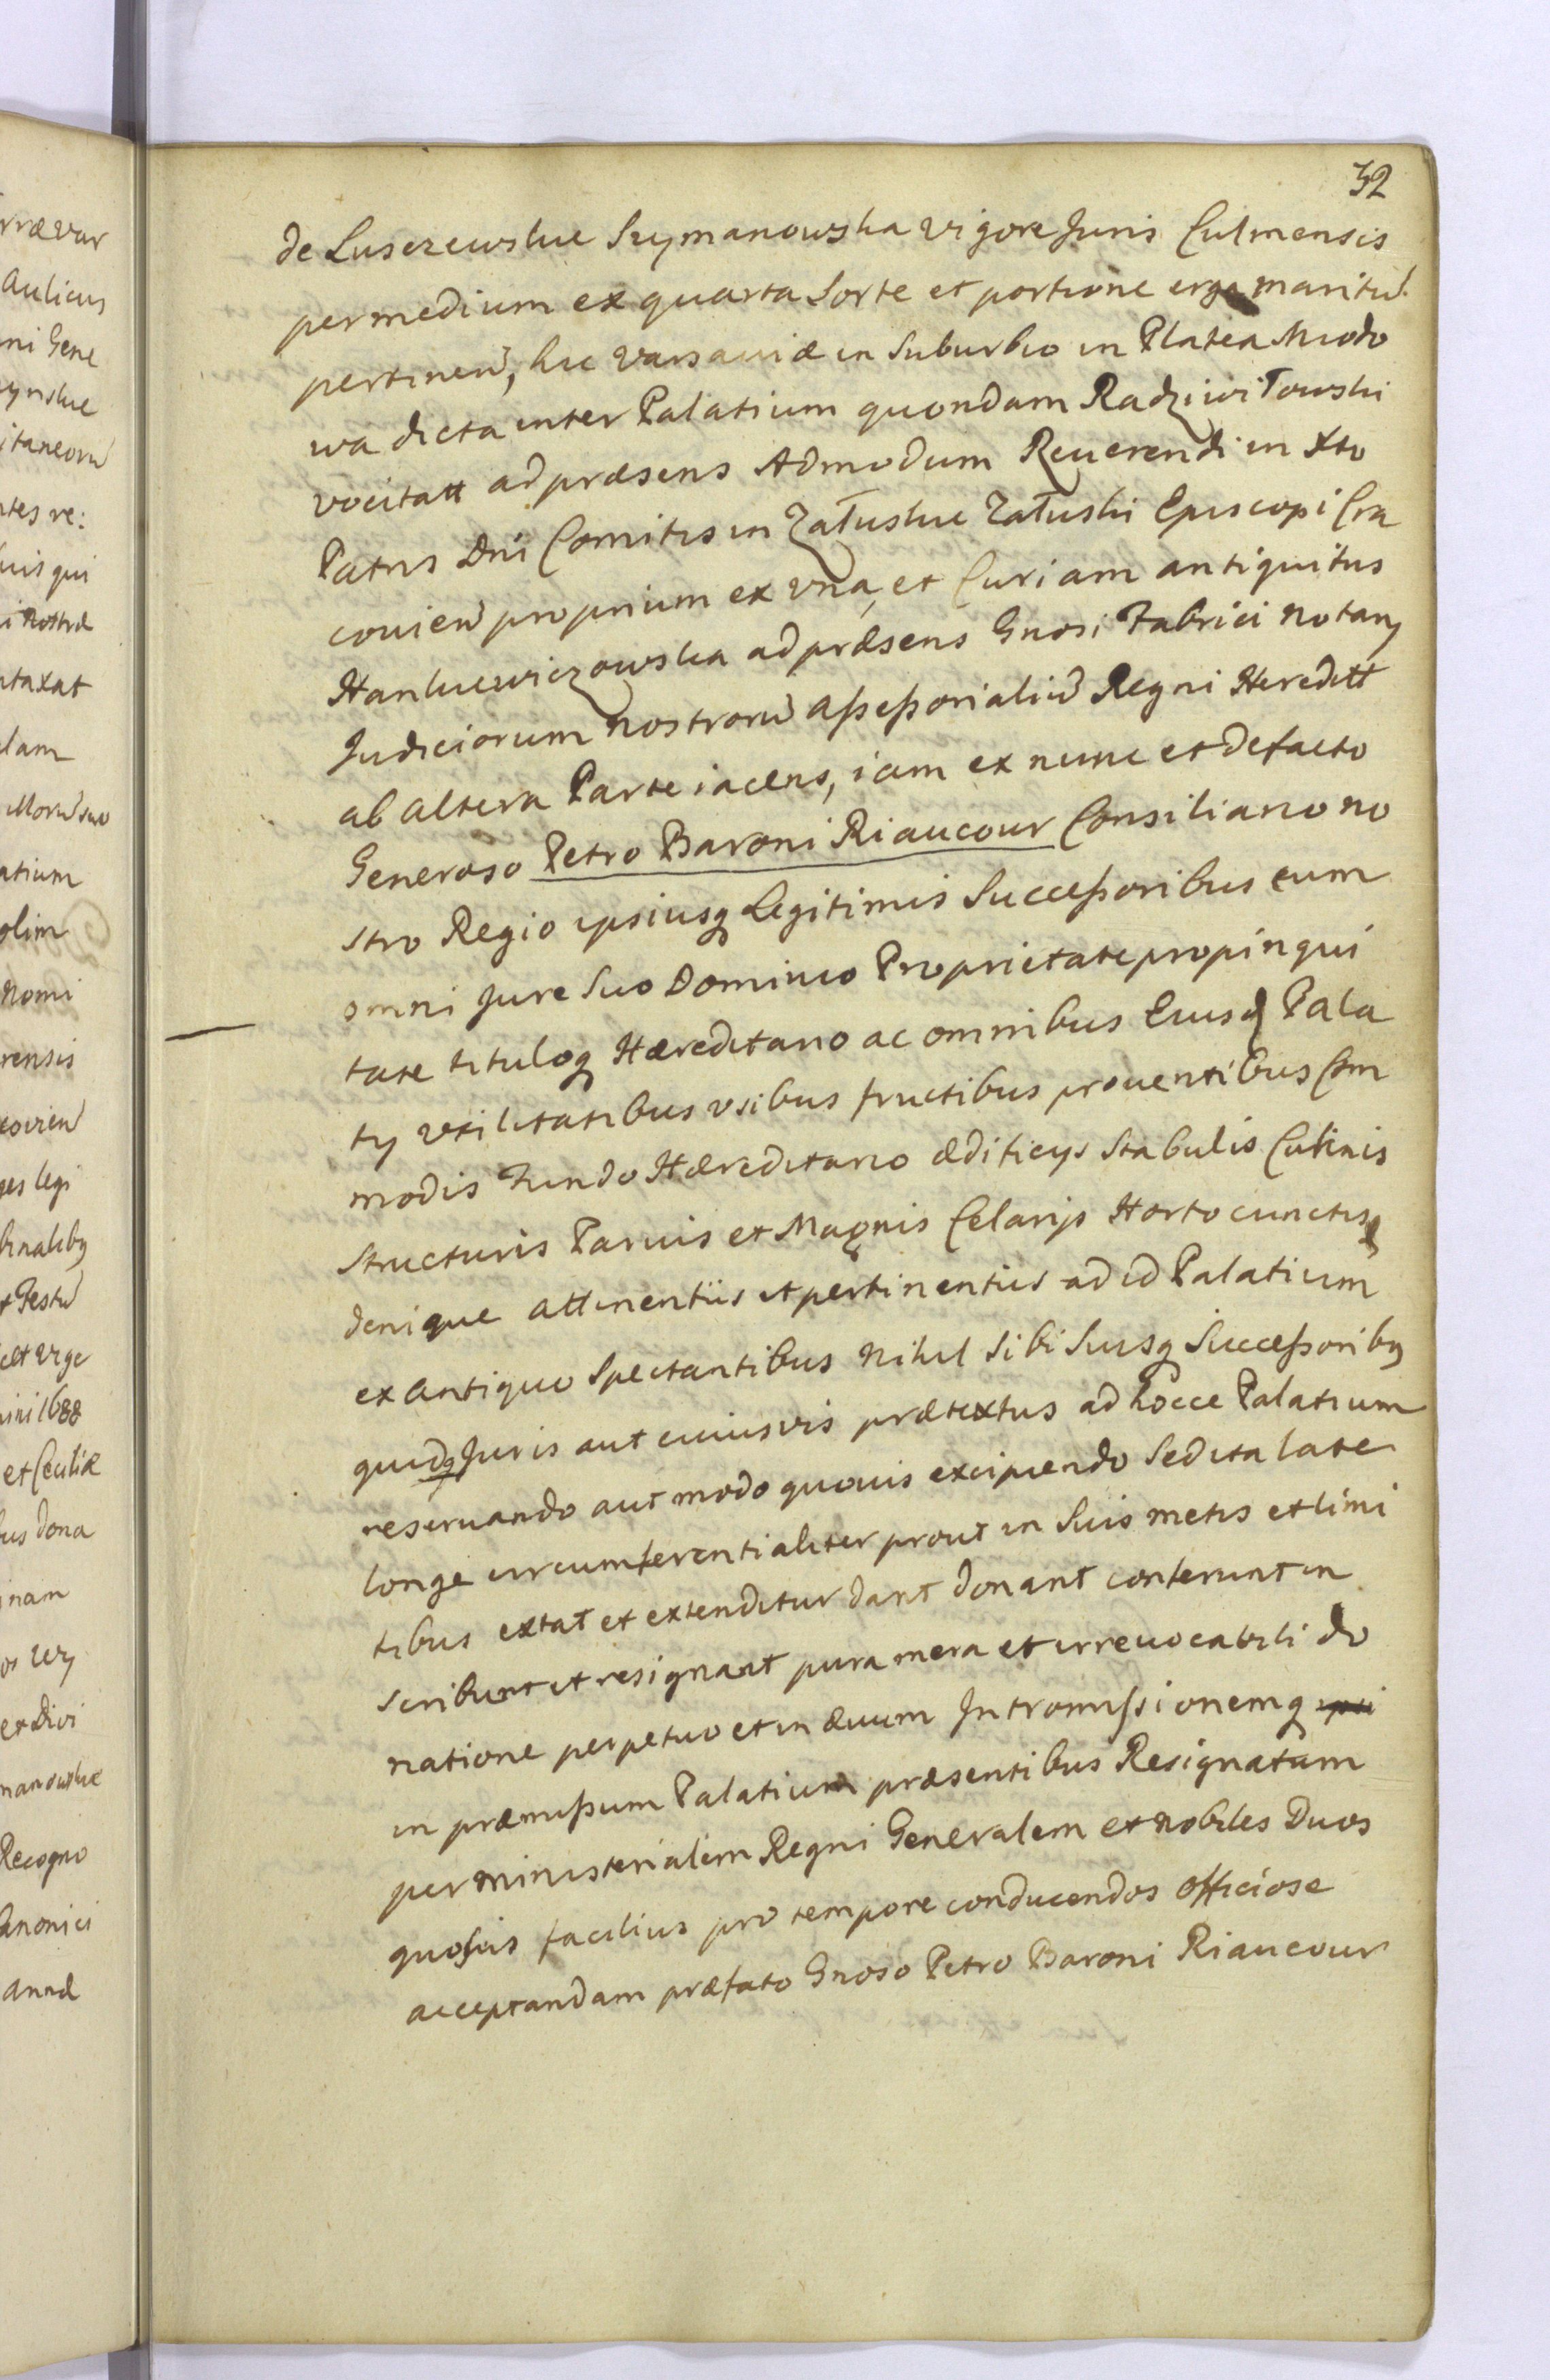 32
de Lusczewskie Szymanowska vigore Juris Culmensis
per medium ex quarta Sorte et portione erga maritū
pertineñ, hic Varsaviæ in Suburbio in Platea Miodo
wa dicta inter Palatium quondam Radziwiłowski
vocitatt ad præsens Admodum Reverendi in Xto
Patris Dni Comitis in Załuskie Załuski Episcopi Cra
covieñ proprium ex vna, et Curiam antiquitus
Hankiewiczowska ad præsens Gnosi Fabrici Notarÿ
Judiciorum nostrorū Assessorialiū Regni Hereditt
ab altera Parte iacens, iam ex nunc et de facto
Generoso Petro Baroni Riaucour Consiliario no
stro Regio ipsiusq Legitimis Successoribus cum
omni Jure Suo Dominio Proprietate propinqui
tate tituloq Hæreditario ac omnibus Eiusd Pala
tÿ vtilitatibus vsibus fructibus proventibus Com
modis Fundo Hæreditario ædificÿs Stabulis Culinis
Structuris Parvis et Magnis Celarÿs Horto cunctis
denique attinentiis et pertinentiis ad id Palatium
ex antiquo Spectantibus nihil Sibi Suisq Successoribq
quidq Juris aut cuiusvis prætextus ad hocce Palatium
reservando aut modo quovis excipiendo Sed ita late
longe circumferentialiter prout in Suis metis et limi
tibus extat et extenditur dant donant conferunt in
scribunt et resignant pura mera et irrevocabili do
natione perpetuo et in ævum Intromissionemq ipsi
in præmissum Palatium præsentibus Resignatam
per ministerialem Regni Generalem et nobiles Duos
quosvis facilius pro tempore conducendos officiose
acceptandam præfato Gnoso Petro Baroni Riaucour